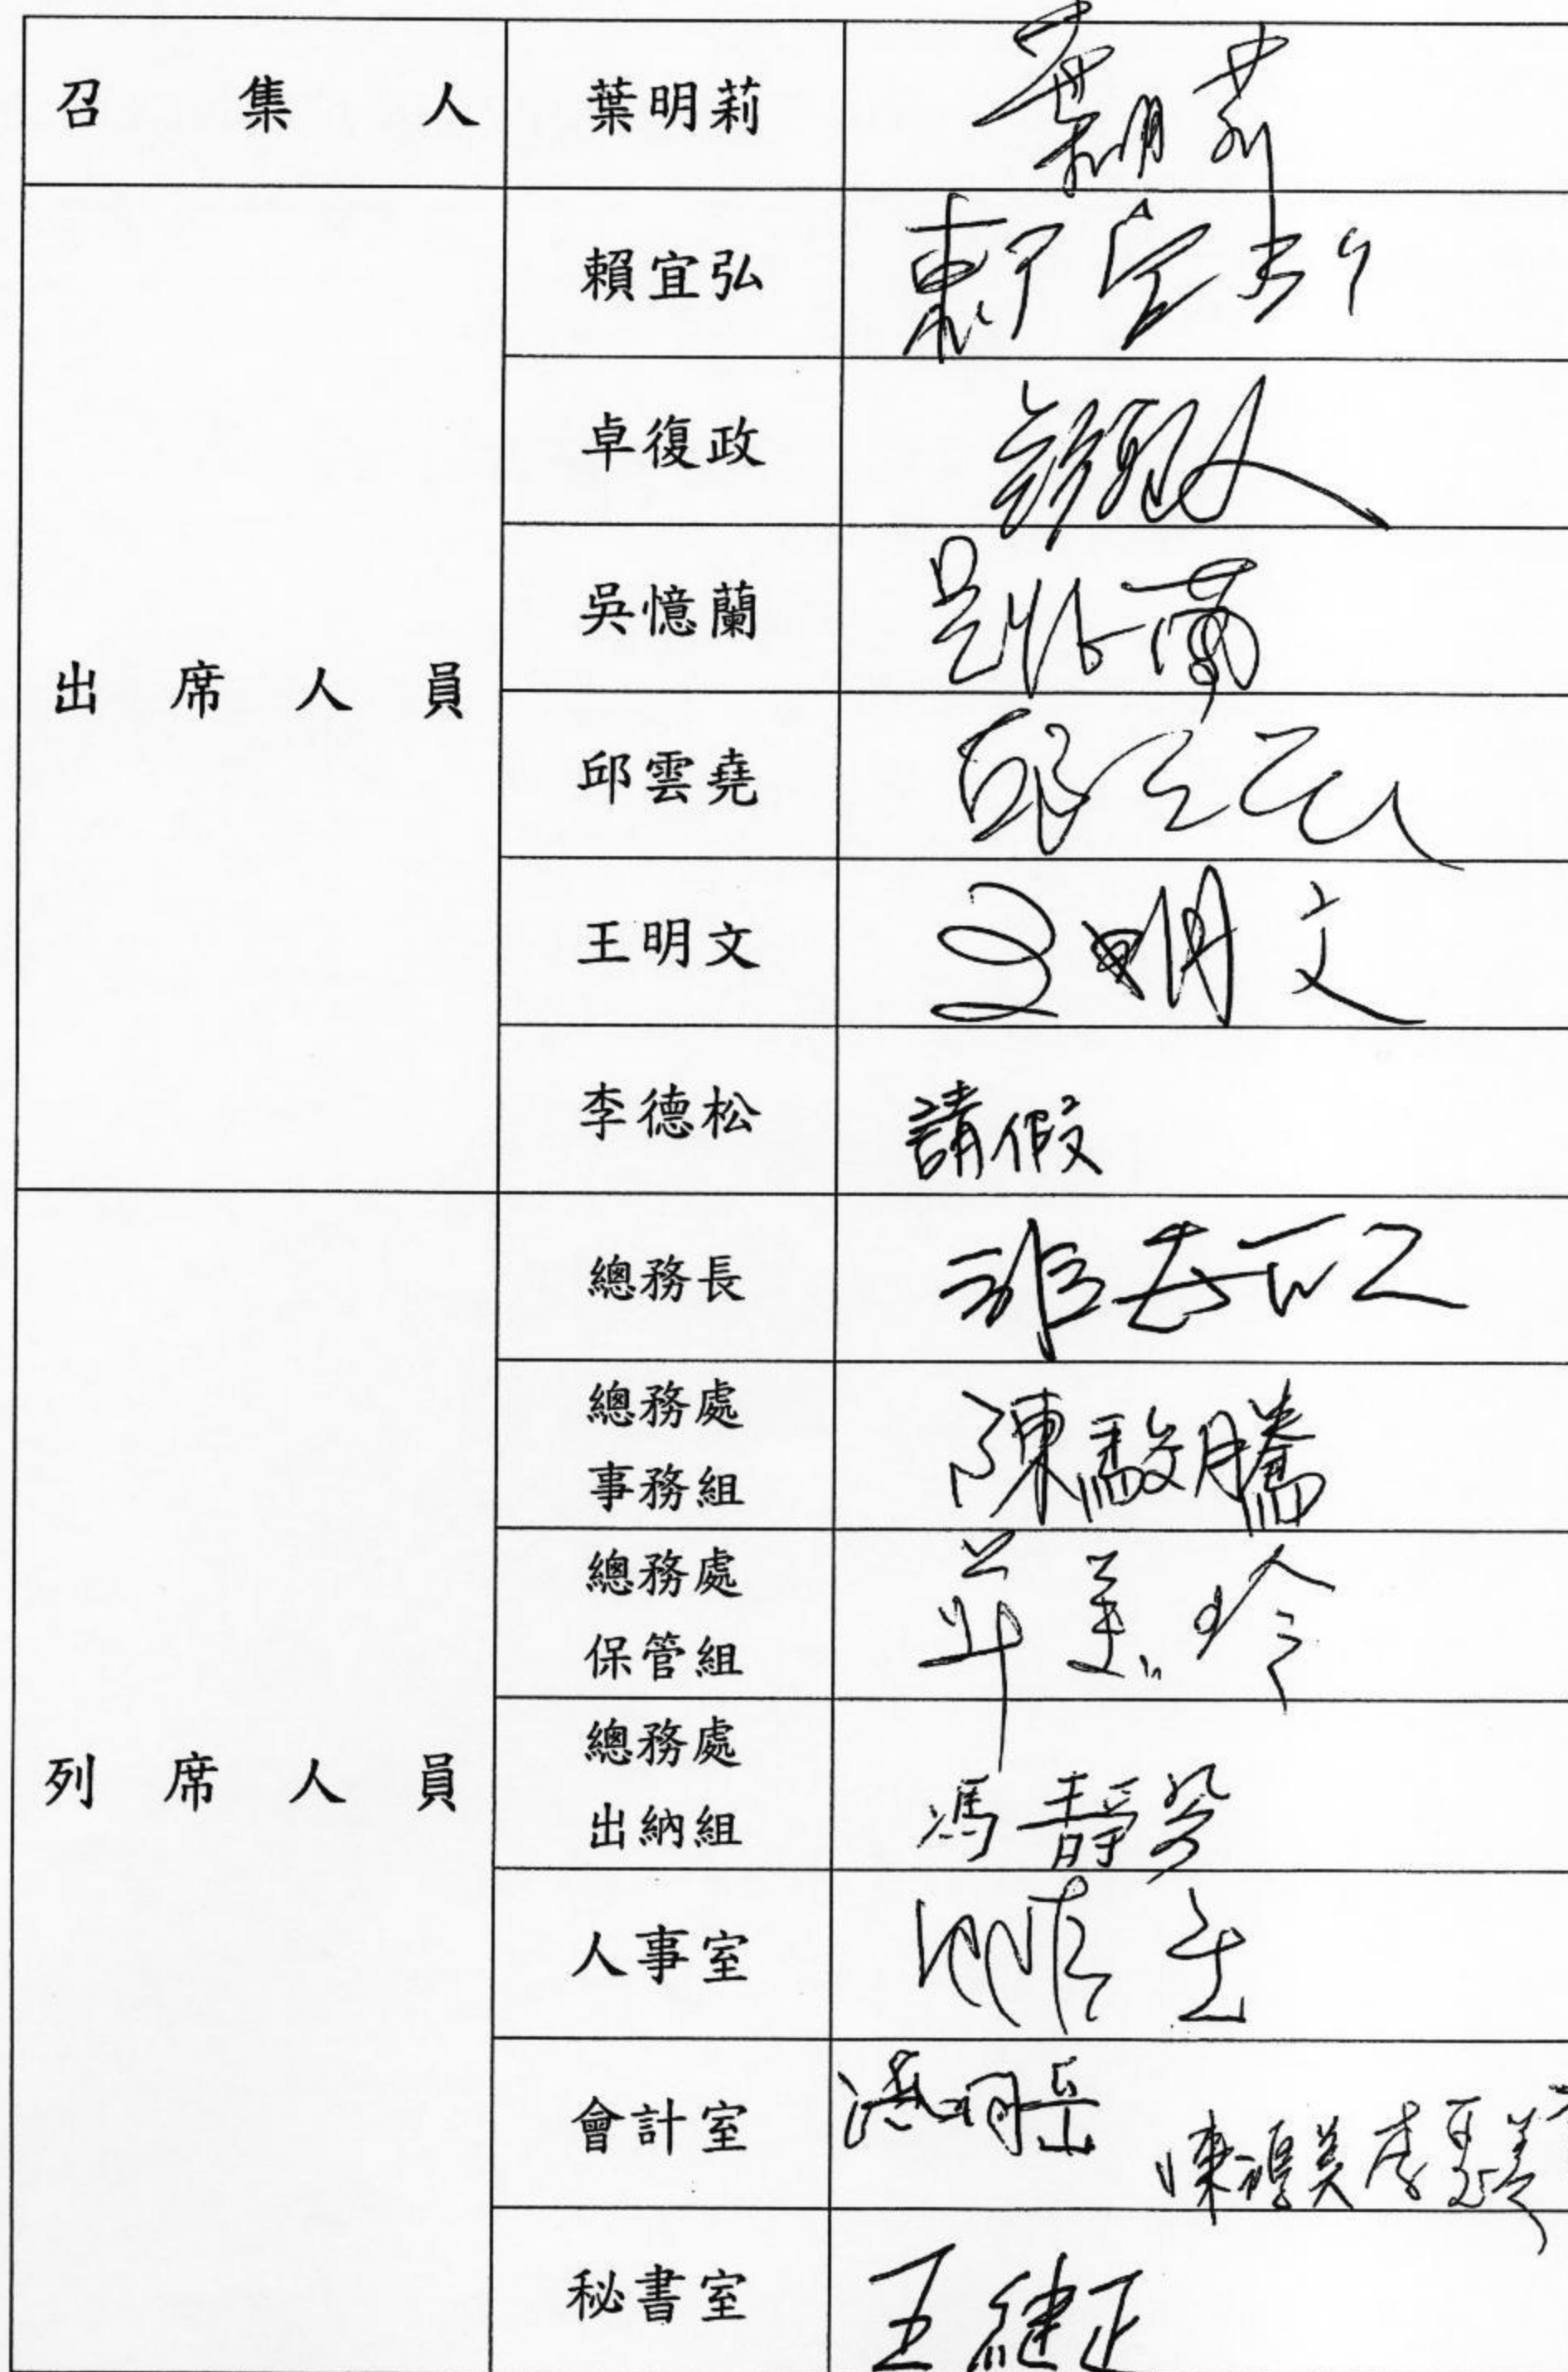 召集人 葉明莉 葉明莉
出席人員
賴宜弘 賴宜弘
卓復政
吳憶蘭 吳憶蘭
邱雲堯 邱雲堯
王明文 王明文
李德松 請假
列席人員
總務長
總務處
事務組
陳駿騰
總務處
保管組
美玲
總務處
出納組
馮靜
人事室
會計室
明岳
陳 美 李
秘書室 王繼正